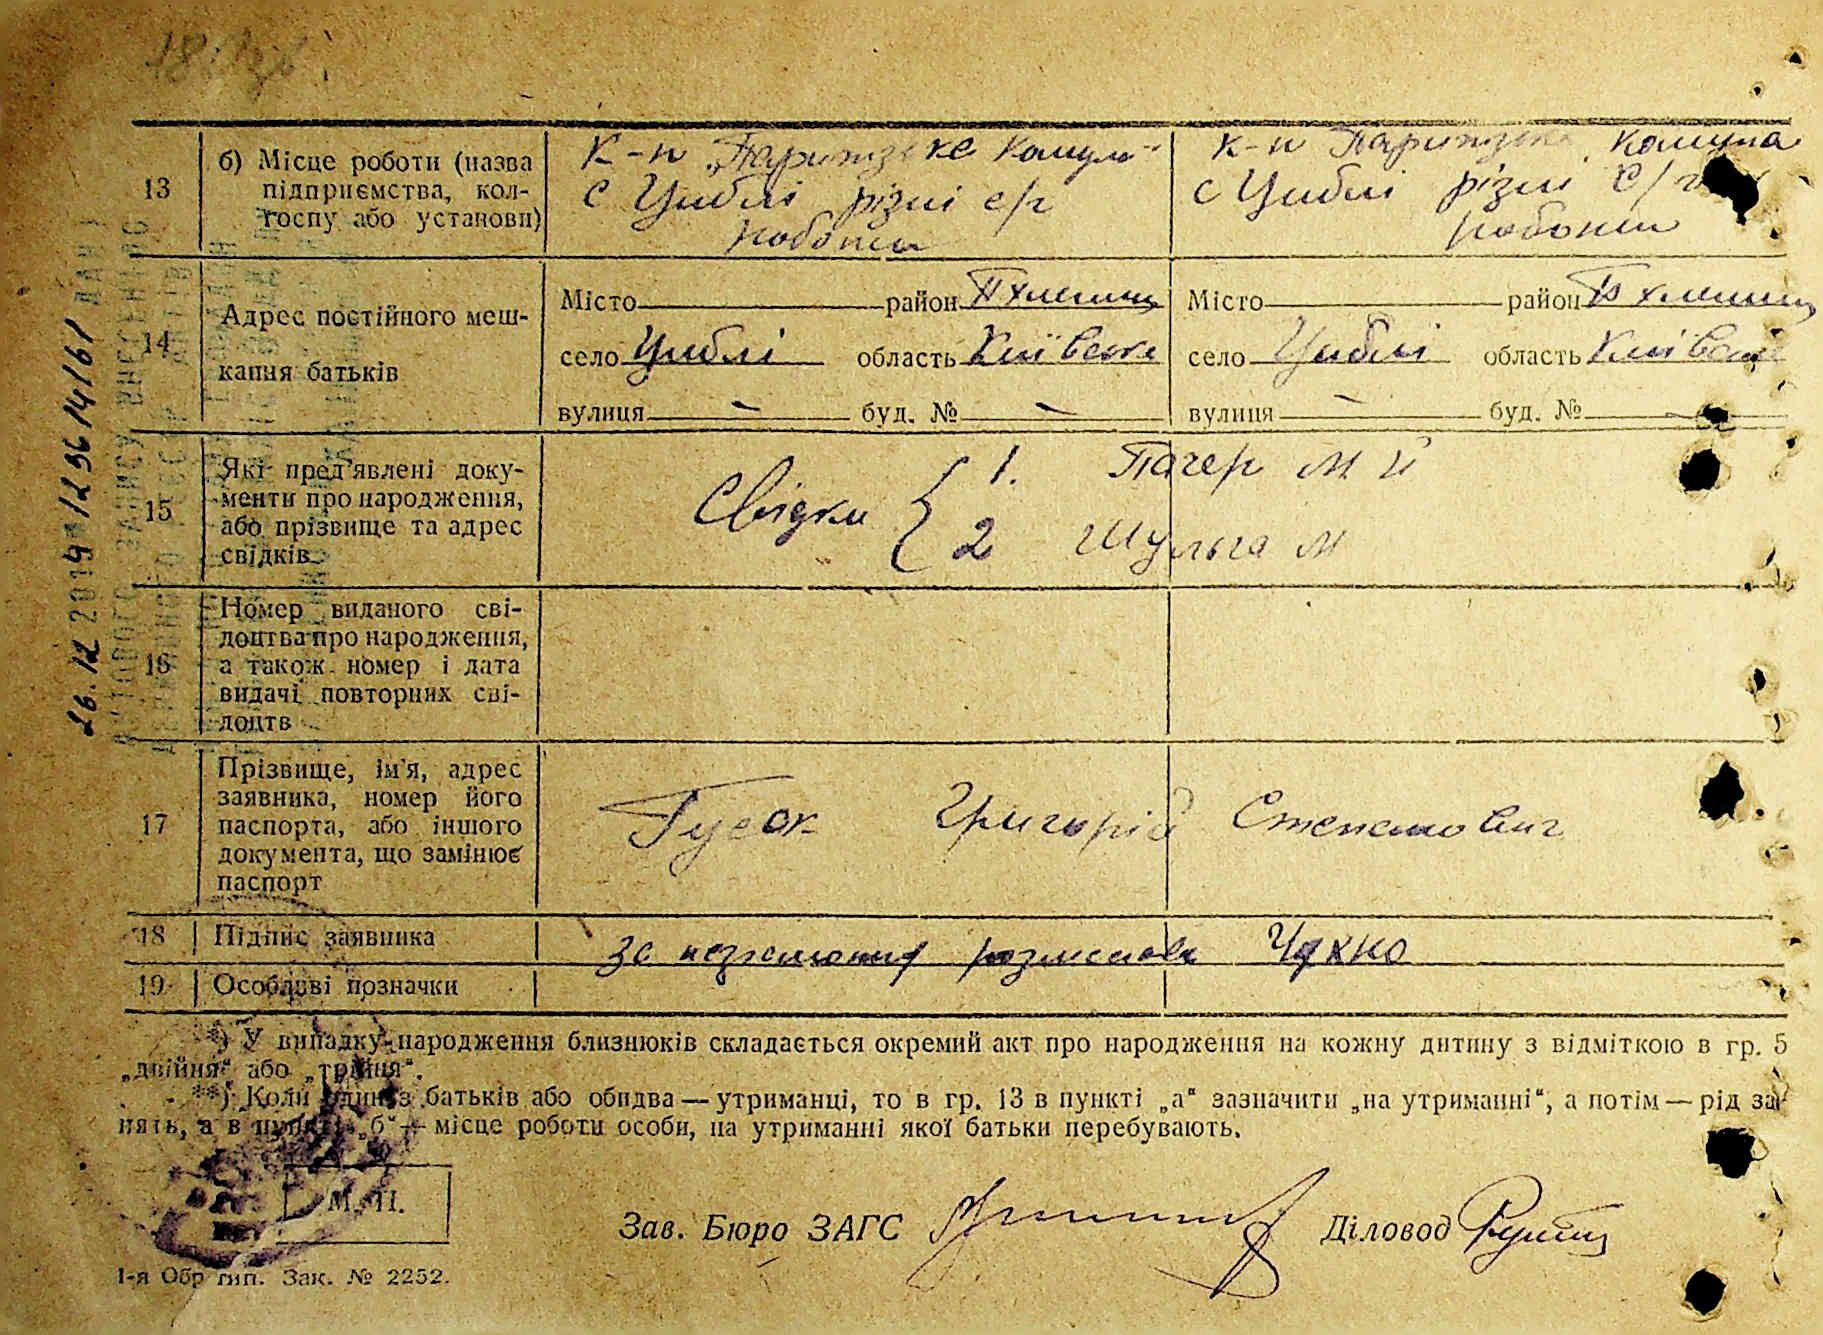 13
б) Місце роботи (назва підприємства, колгоспу або установи)
К-п „Паризьке Комуна
с Циблі різні с/г
роботи
К-п Паризька Комуна
с Циблі різні с/г
роботи
14
Адрес постійного мешкання батьків
Місто район П Хмельниц
село Циблі область Київська
вулиця — буд. № —
Місто район П Хмельниц
село Циблі область Київська
вулиця — буд. №
15
Які пред'явлені документи про народження, або прізвище та адрес свідків
Свідки { 1. Пачер М Й
2 Шульга М
16
Номер виданого свідоцтва про народження, а також номер і дата видачі повторних свідоцтв
17
Прізвище, ім'я, адрес заявника, номер його паспорта, або іншого документа, що замінює паспорт
Гусак Григорій Степанович
18
Підпис заявника
за неграмотного розписався Чухно
19
Особливі позначки
*) У випадку народження близнюків складається окремий акт про народження на кожну дитину з відміткою в гр. 5
„двійня“ або „трійня“.
**) Коли один з батьків або обидва — утриманці, то в гр. 13 в пункті „а“ зазначити „на утриманні“, а потім — рід за-
нять, а в пункті „б“ — місце роботи особи, на утриманні якої батьки перебувають.
М. П.
Зав. Бюро ЗАГС
Діловод
1-я Обр тип. Зак. № 2252.
26.12 2019 / 12 36 14/61